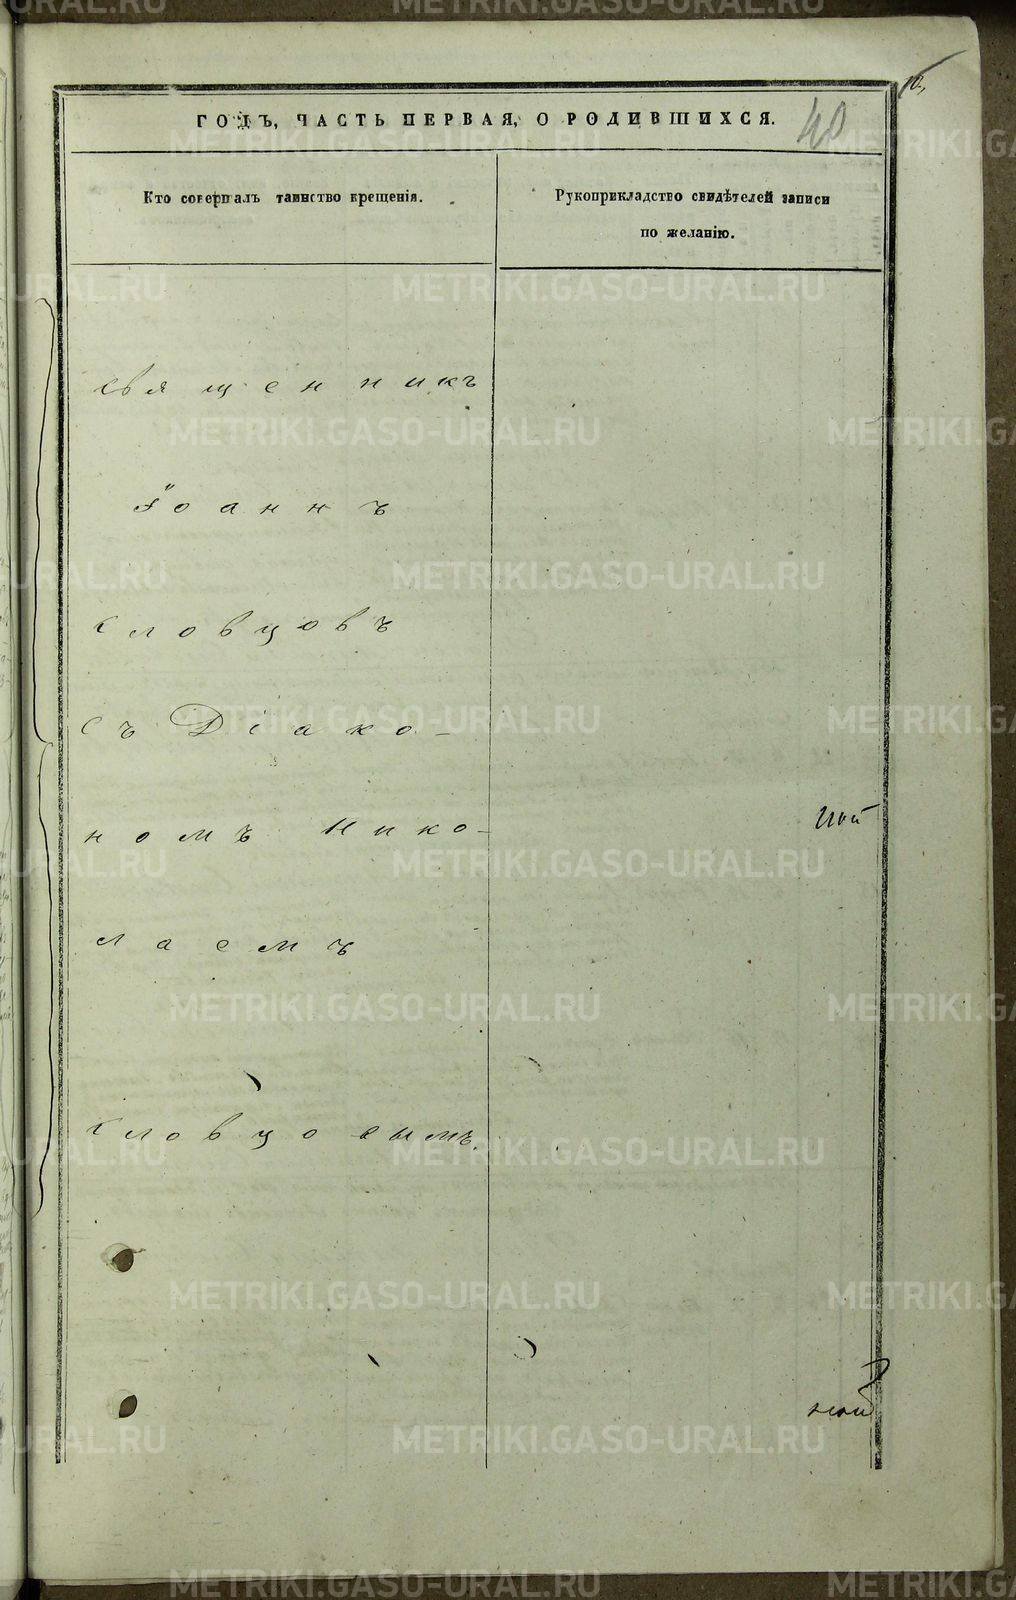 ГОДЪ, ЧАСТЬ ПЕРВАЯ, О РОДИВШИХСЯ.
40
Кто совершалъ таинство крещенія.
Рукоприкладство свидѣтелей записи
по желанію.
священникъ
Іоаннъ
Словцовъ
съ Діако-
номъ Нико-
лаемъ
Словцовымъ
METRIKI.GASO-URAL.RU